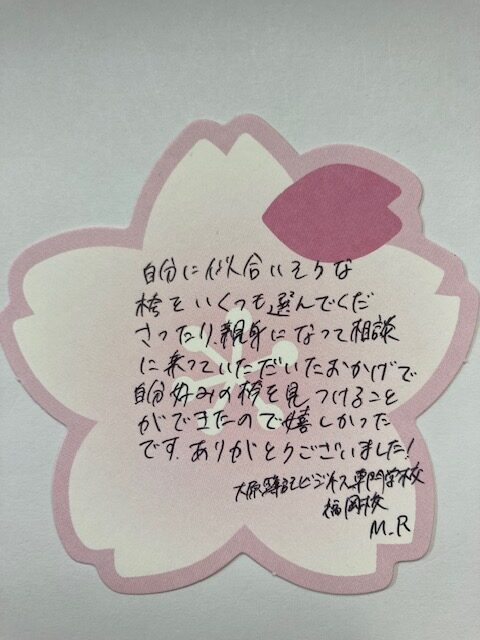 自分に似合いそうな
袴をいくつも選んでくだ
さったり、親身になって相談
に乗っていただいたおかげで
自分好みの袴を見つけること
ができたので嬉しかった
です。ありがとうございました!
大原簿記ビジネス専門学校
福岡校
M.R